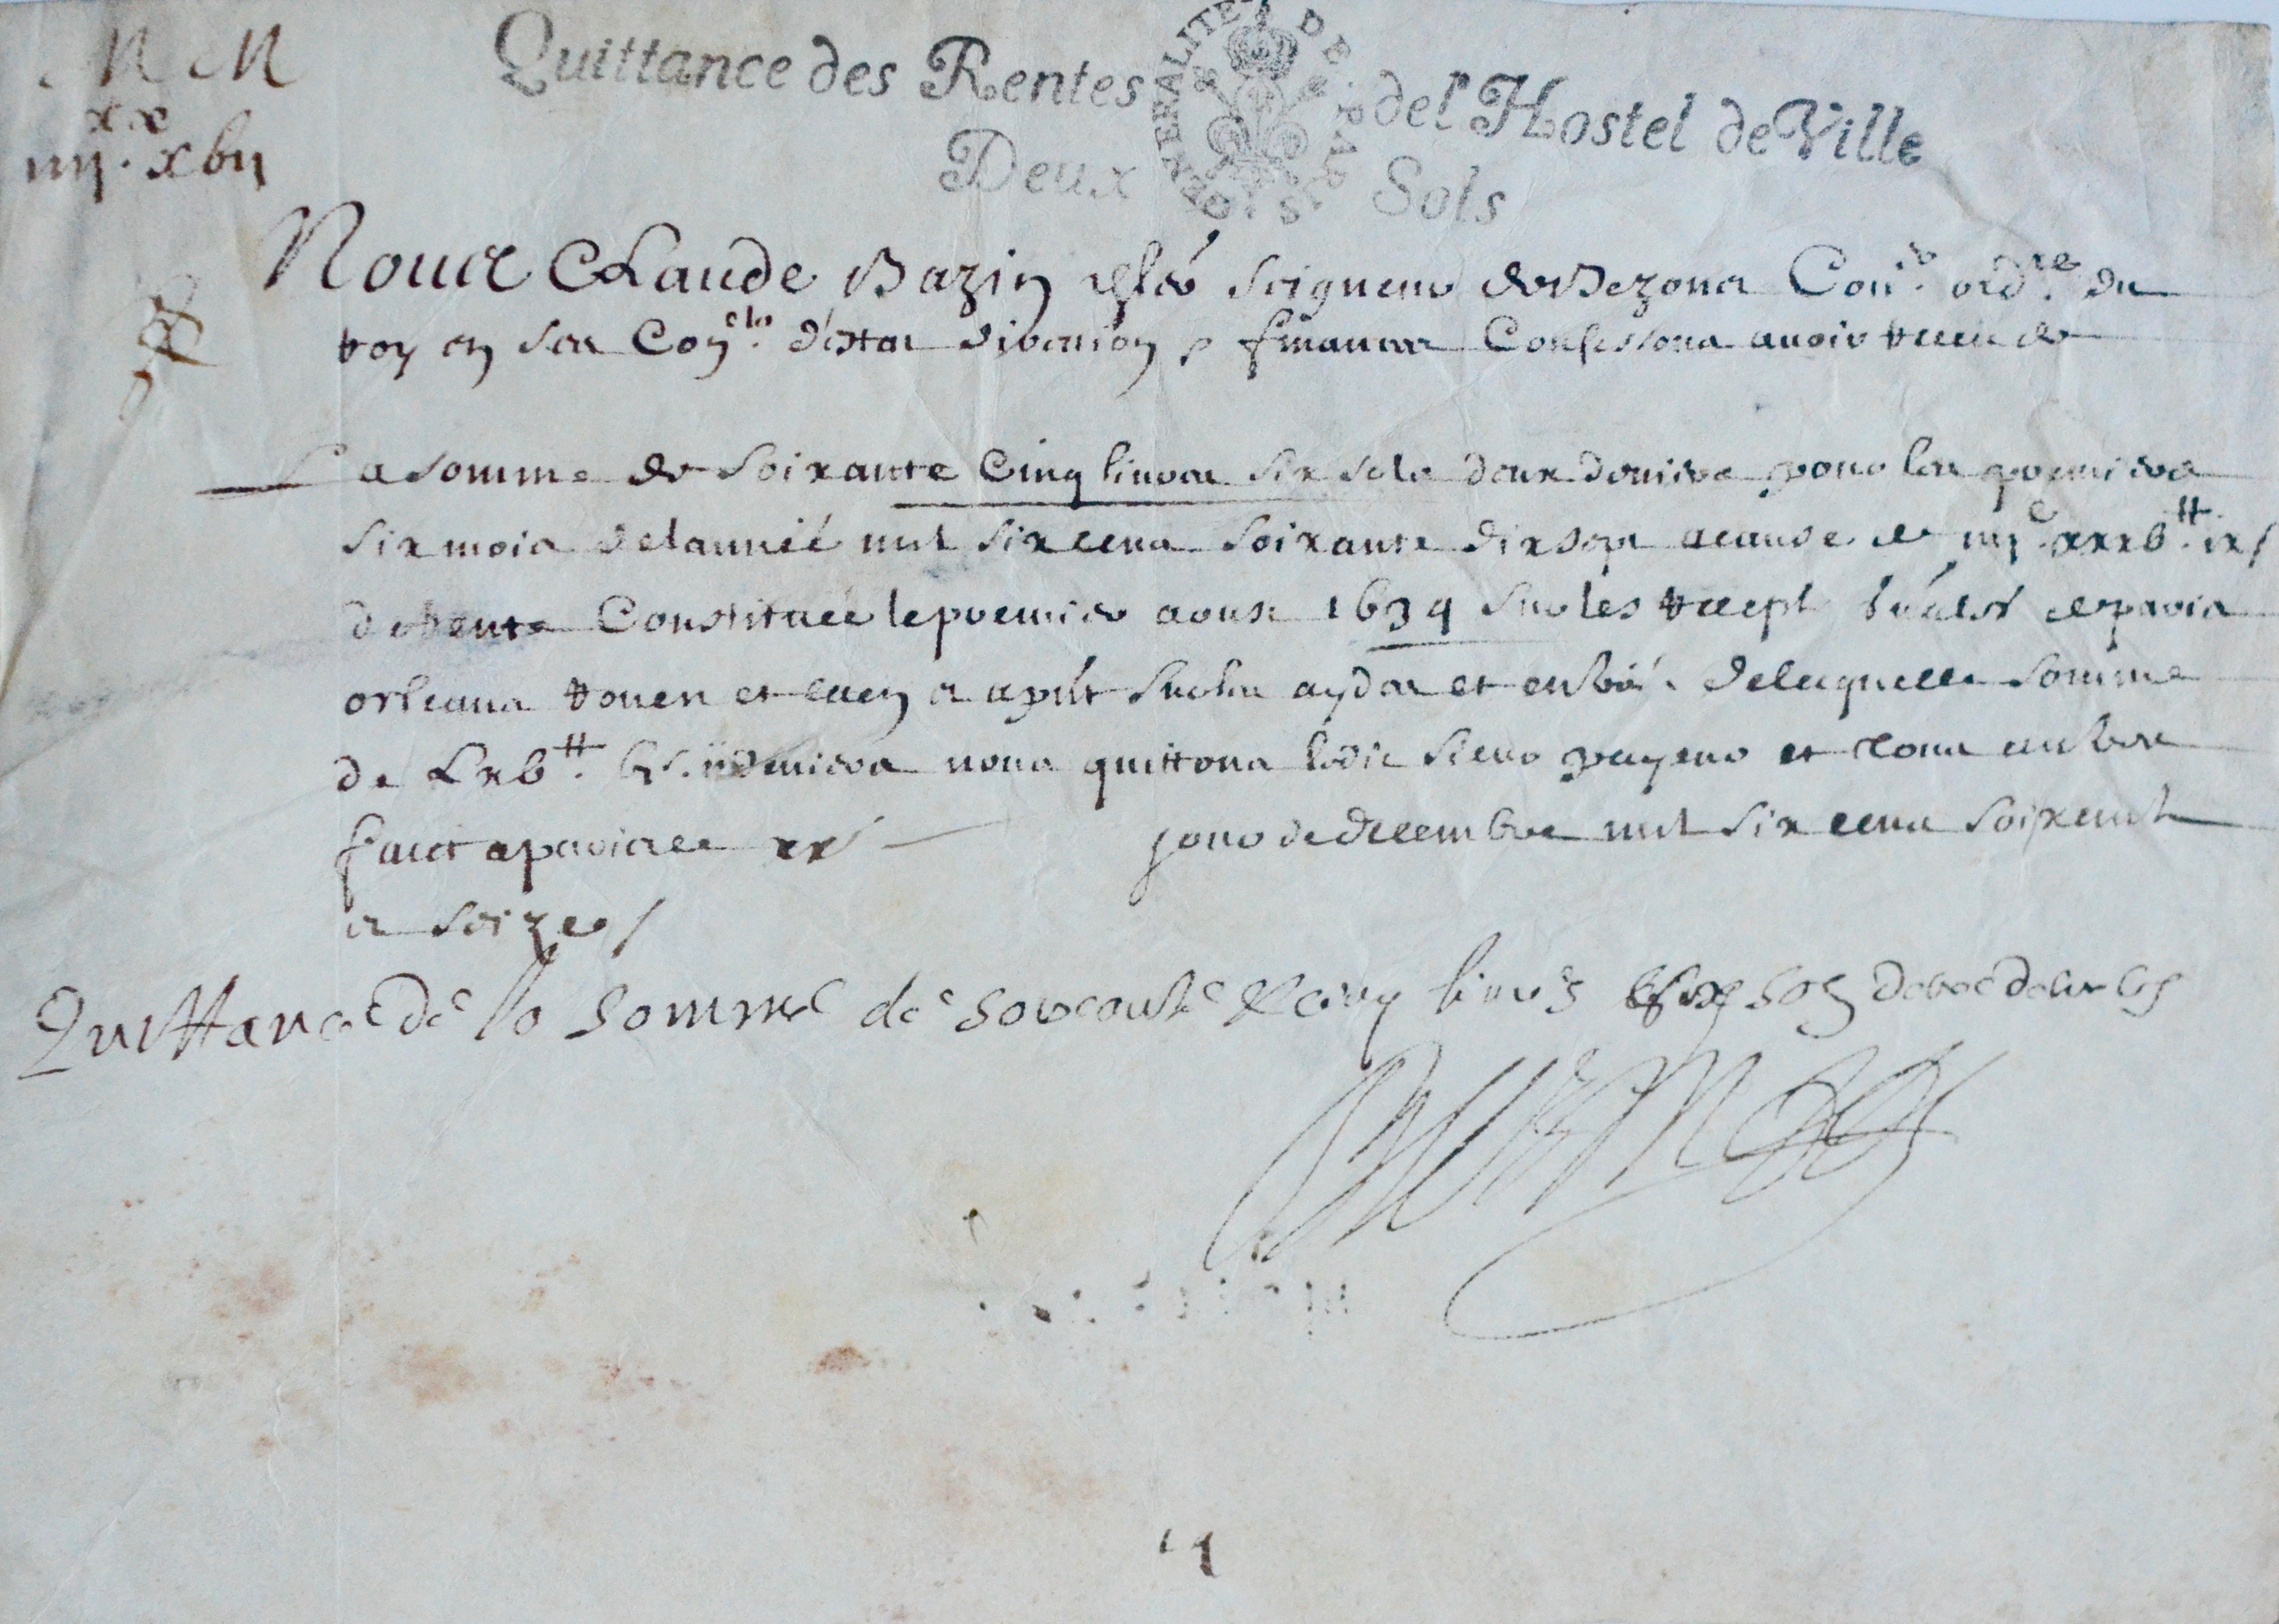 M M
xx
iiij. xbij
Quittance des Rentes de l'Hostel de Ville
GENERALITE DE PARIS
Deux Sols
Nous Claude Bazin seigneur de Bezons Con.er ord.re du
Roy en ses Con.lz d'estat direction finances Confessons avoir receu de
La somme de soixante cinq livres six sols deux deniers pour les premiers
six mois de lannée mil six cens soixante dix sept a cause de iiij.c xxxb.tt ix s
de Rente Constituée le premier aoust 1634 sur les recept de paris
orleans Rouen et caen a sur les aydes et de laquelle somme
de Lxb.tt deniers nous quittons ledit sieur payeur et tous autres
faict a paris ce xx jour de decembre mil six cens soixante
et seize /
Quittance de la somme de soixante & cinq livres six sols deux deniers